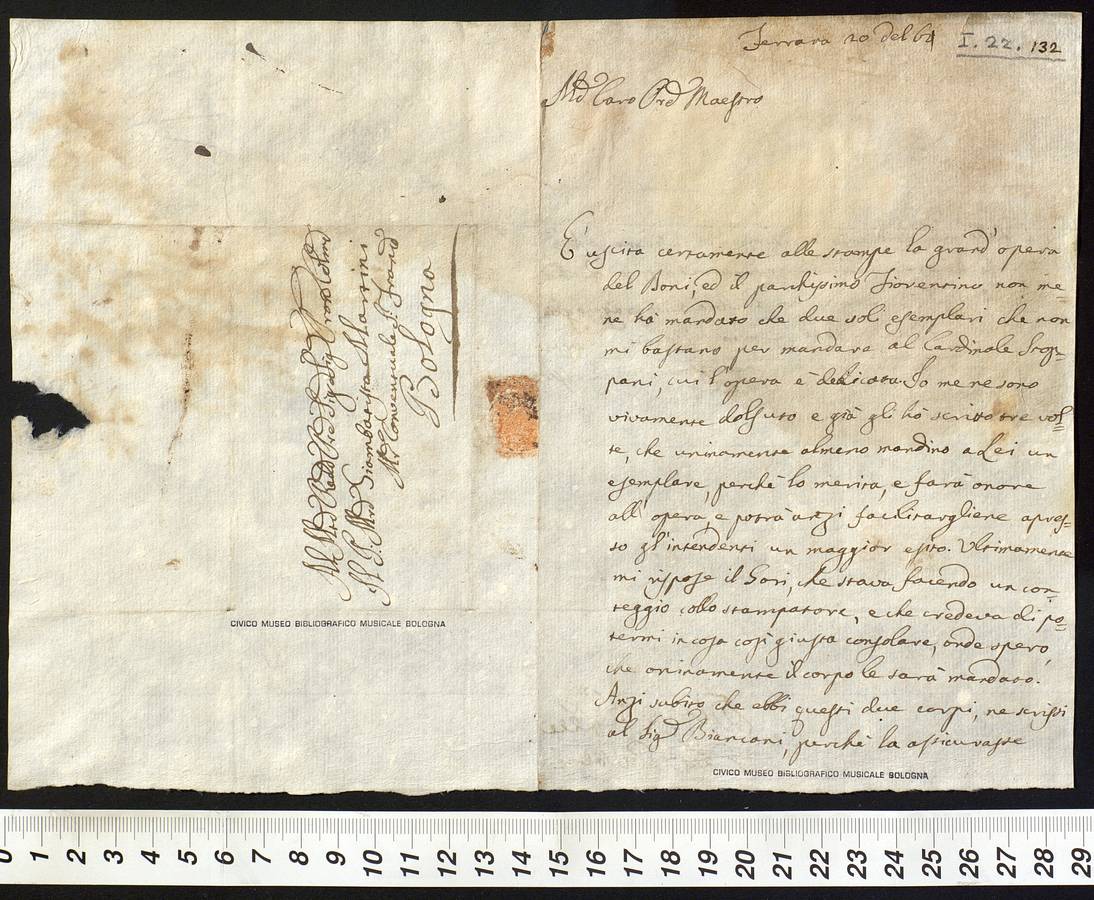 Ferrara 20 del 64
I. 22. 132
Mtō Caro Prē Maestro
E' uscita certamente alle stampe la grand' opera
del Boni, ed il parchissimo Fiorentino non me
ne ha mandato che due soli esemplari che non
mi bastano per mandare al Cardinale Stop=
pani, cui l'opera è dedicata. Io me ne sono
vivamente dolsuto e già gli hò scritto tre vol=
te, che uninamente almeno mandino a Lei un
esemplare, perchè lo merita, e farà onore
all' opera, e potrà anzi facilitargliene apres=
so gl'intendenti un maggior esito. Ultimamente
mi rispose il Gori, che stava facendo un con=
teggio collo stampatore, e che credeva di po=
termi in cosa così giusta consolare, onde spero
che oninamente il corpo le sarà mandato.
Anzi subito che ebbi questi due corpi, ne scrissi
al Sigr Bianconi, perchè la assicurasse
CIVICO MUSEO BIBLIOGRAFICO MUSICALE BOLOGNA
Al
Il P. Mrō Giambatista Martini
Mr Conventuale S. Franco
Bologna
CIVICO MUSEO BIBLIOGRAFICO MUSICALE BOLOGNA
0 1 2 3 4 5 6 7 8 9 10 11 12 13 14 15 16 17 18 19 20 21 22 23 24 25 26 27 28 29